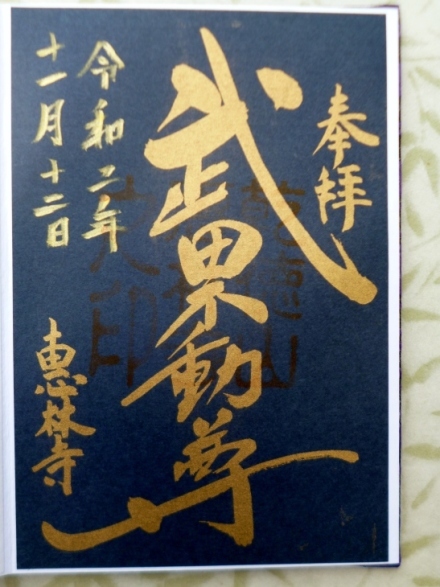 奉拝
武田不動尊
令和二年
十一月十二日
惠林寺